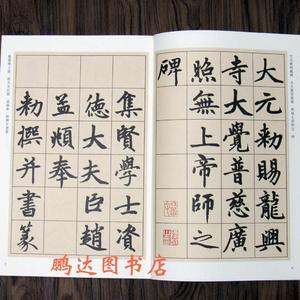 大元勅賜龍興
寺大覺普慈廣
照無上帝師之
碑
集賢學士資
德大夫臣趙
孟頫奉
勅撰并書篆
鹏达图书店